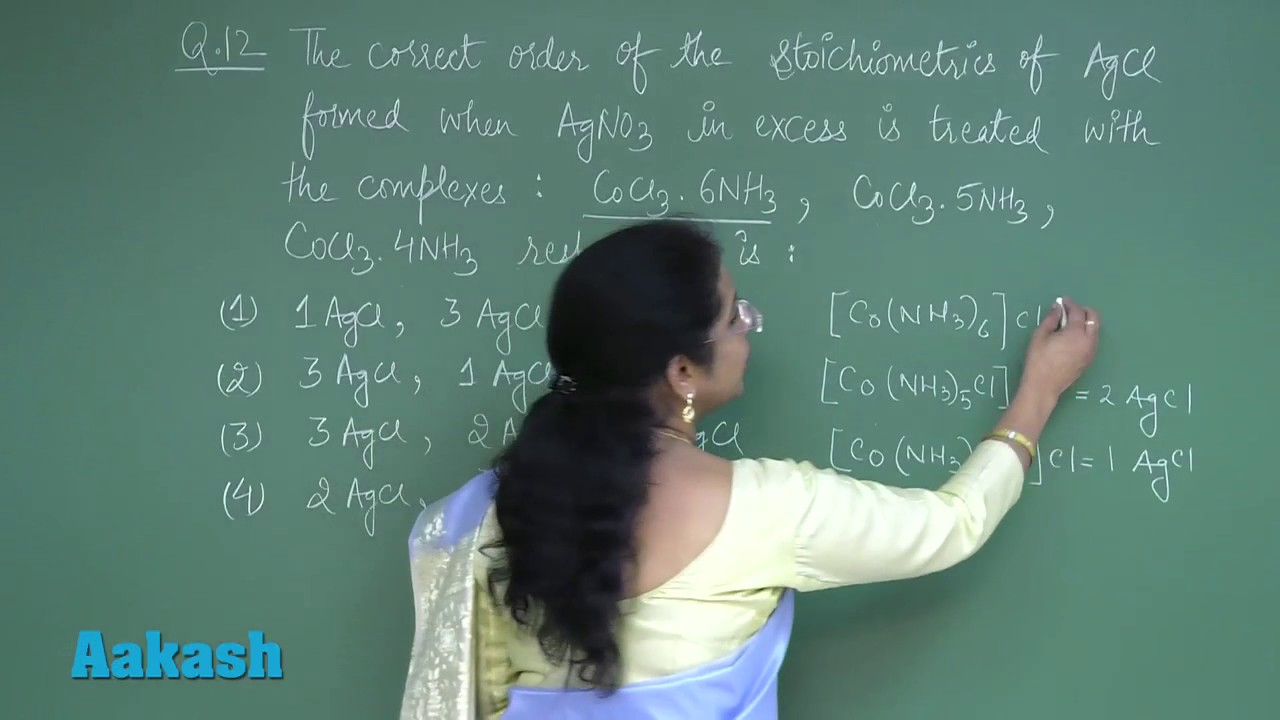 Q.12 The correct order of the Stoichiometrics of AgCl
formed when AgNO3 in excess is treated with
the complexes : CoCl3.6NH3, CoCl3.5NH3,
CoCl3.4NH3 is :
(1) 1 AgCl, 3 AgCl
(2) 3 AgCl, 1 AgCl
(3) 3 AgCl,
(4) 2 AgCl,
[Co(NH3)6]Cl
[Co(NH3)5Cl] = 2 AgCl
[Co(NH3) ]Cl = 1 AgCl
Aakash